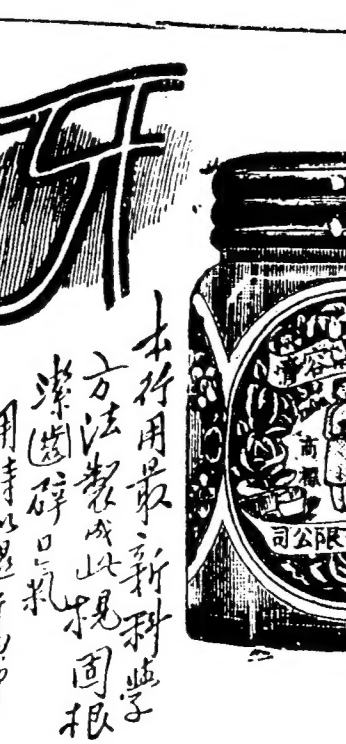 牙
本行用最新科學
方法製成此梘固根
潔齒辟口氣
用時以
商標
限公司